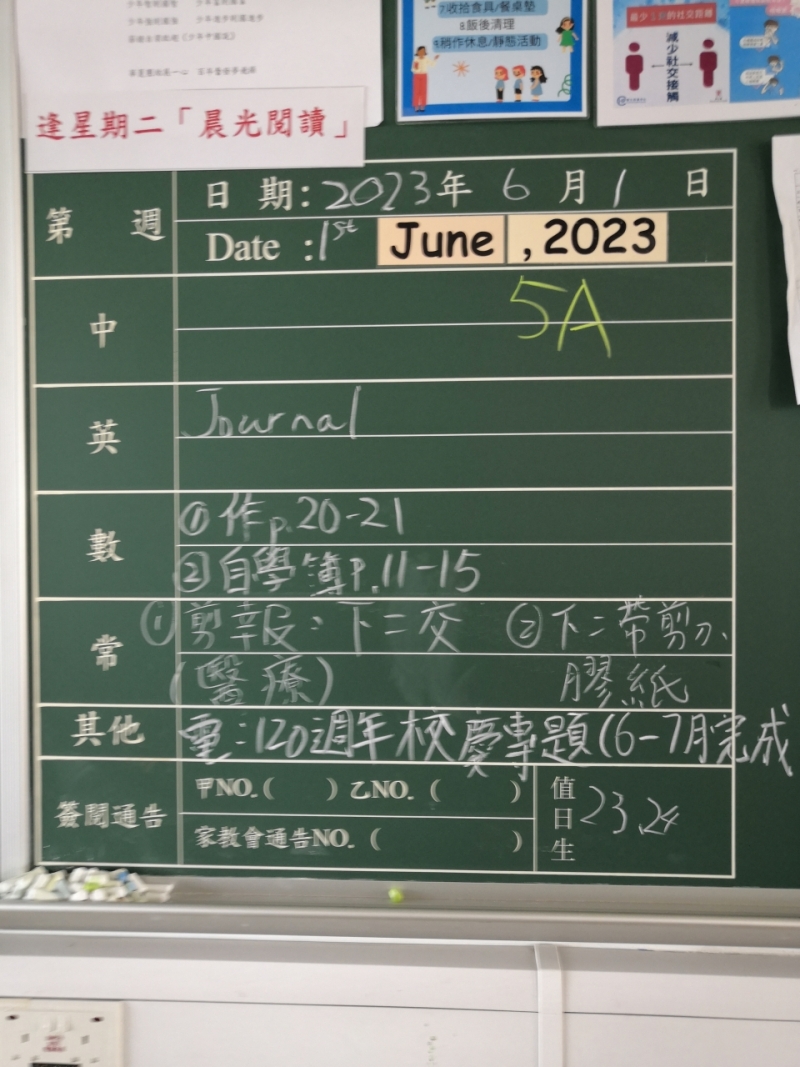 7.收拾食具/餐桌墊
8.飯後清理
9.稍作休息/靜態活動
減少社交接觸
逢星期二「晨光閱讀」
第 週
日 期:2023年 6 月 1 日
Date :1st June , 2023
中
5A
英
Journal
數
①作p.20-21
②自學簿P.11-15
常
①剪報:下二交 ②下二帶剪刀、
(醫療) 膠紙
其他
電:120週年校慶專題(6-7月完成
簽閱通告
甲NO.( ) 乙NO. ( )
家教會通告NO. ( )
值日生
23,24